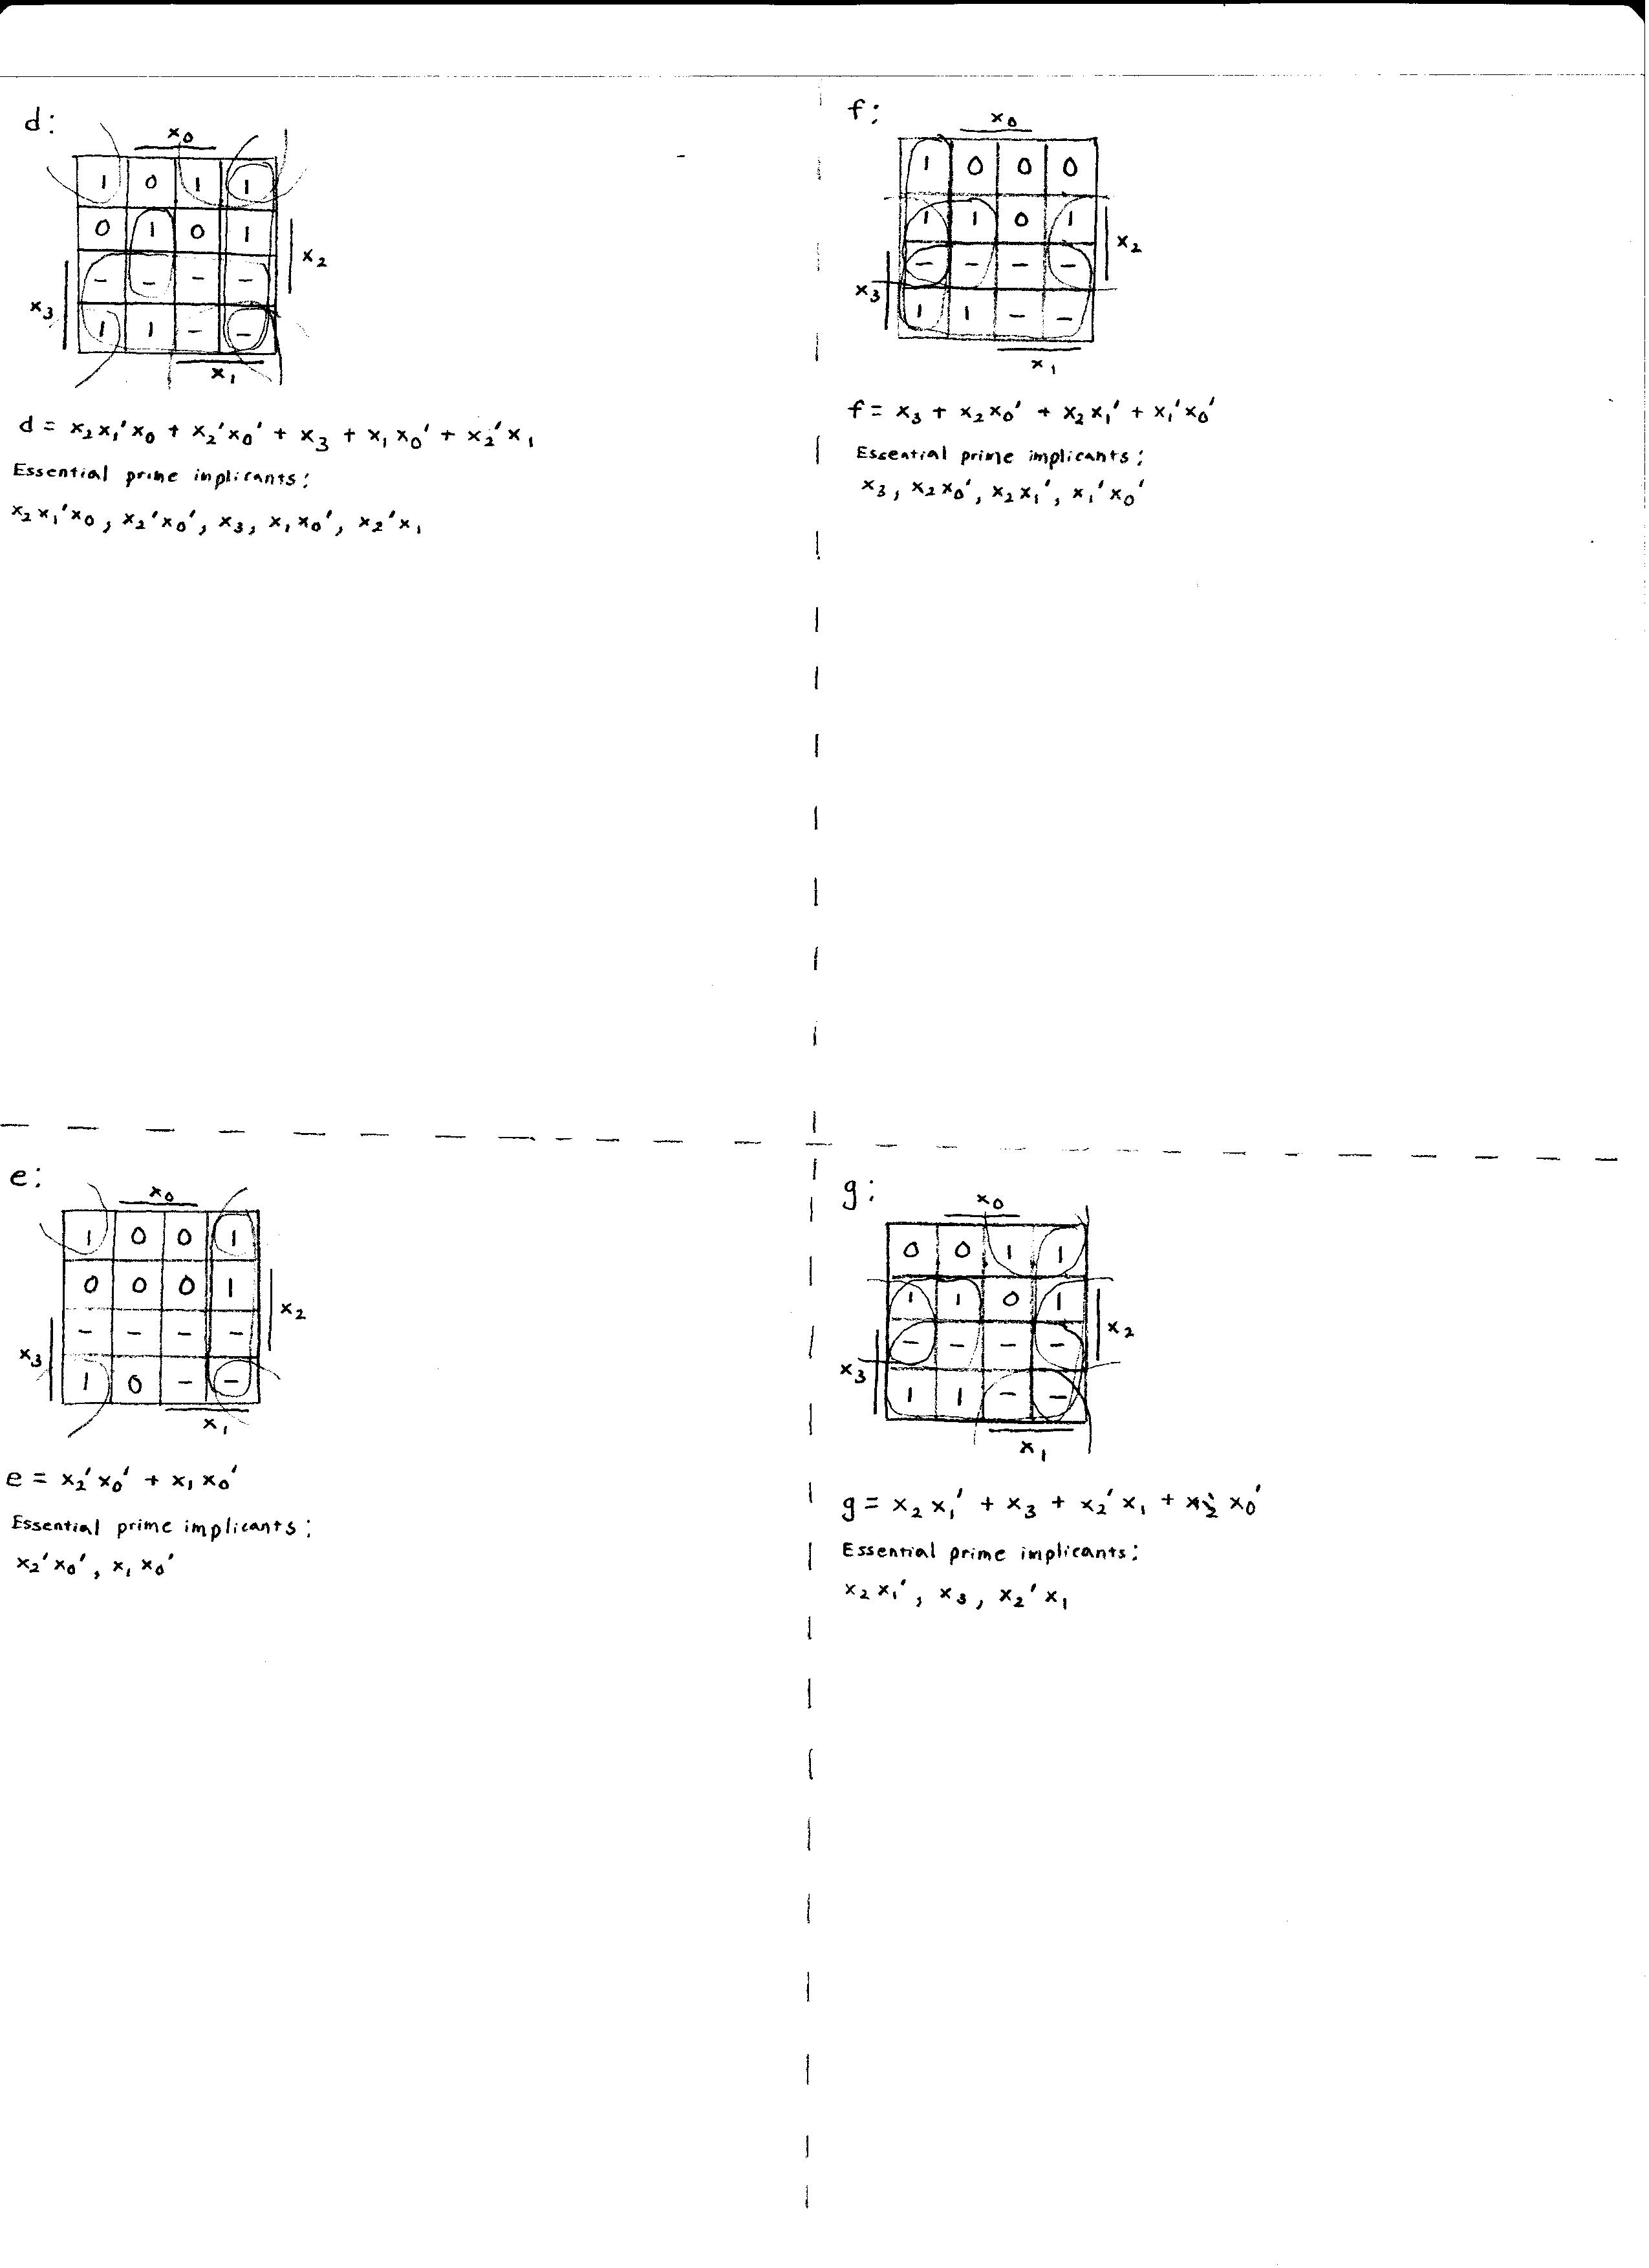 d:
x0
1 0 1 1
0 1 0 1
x2
- - - -
x3
1 1 - -
x1
d = x2x1'x0 + x2'x0' + x3 + x1x0' + x2'x1
Essential prime implicants:
x2x1'x0, x2'x0', x3, x1x0', x2'x1
f:
x0
1 0 0 0
1 1 0 1
x2
- - - -
x3
1 1 - -
x1
f = x3 + x2x0' + x2x1' + x1'x0'
Essential prime implicants:
x3, x2x0', x2x1', x1'x0'
e:
x0
1 0 0 1
0 0 0 1
x2
- - - -
x3
1 0 - -
x1
e = x2'x0' + x1x0'
Essential prime implicants:
x2'x0', x1x0'
g:
x0
0 0 1 1
1 1 0 1
x2
- - - -
x3
1 1 - -
x1
g = x2x1' + x3 + x2'x1 + x2x0'
Essential prime implicants:
x2x1', x3, x2'x1